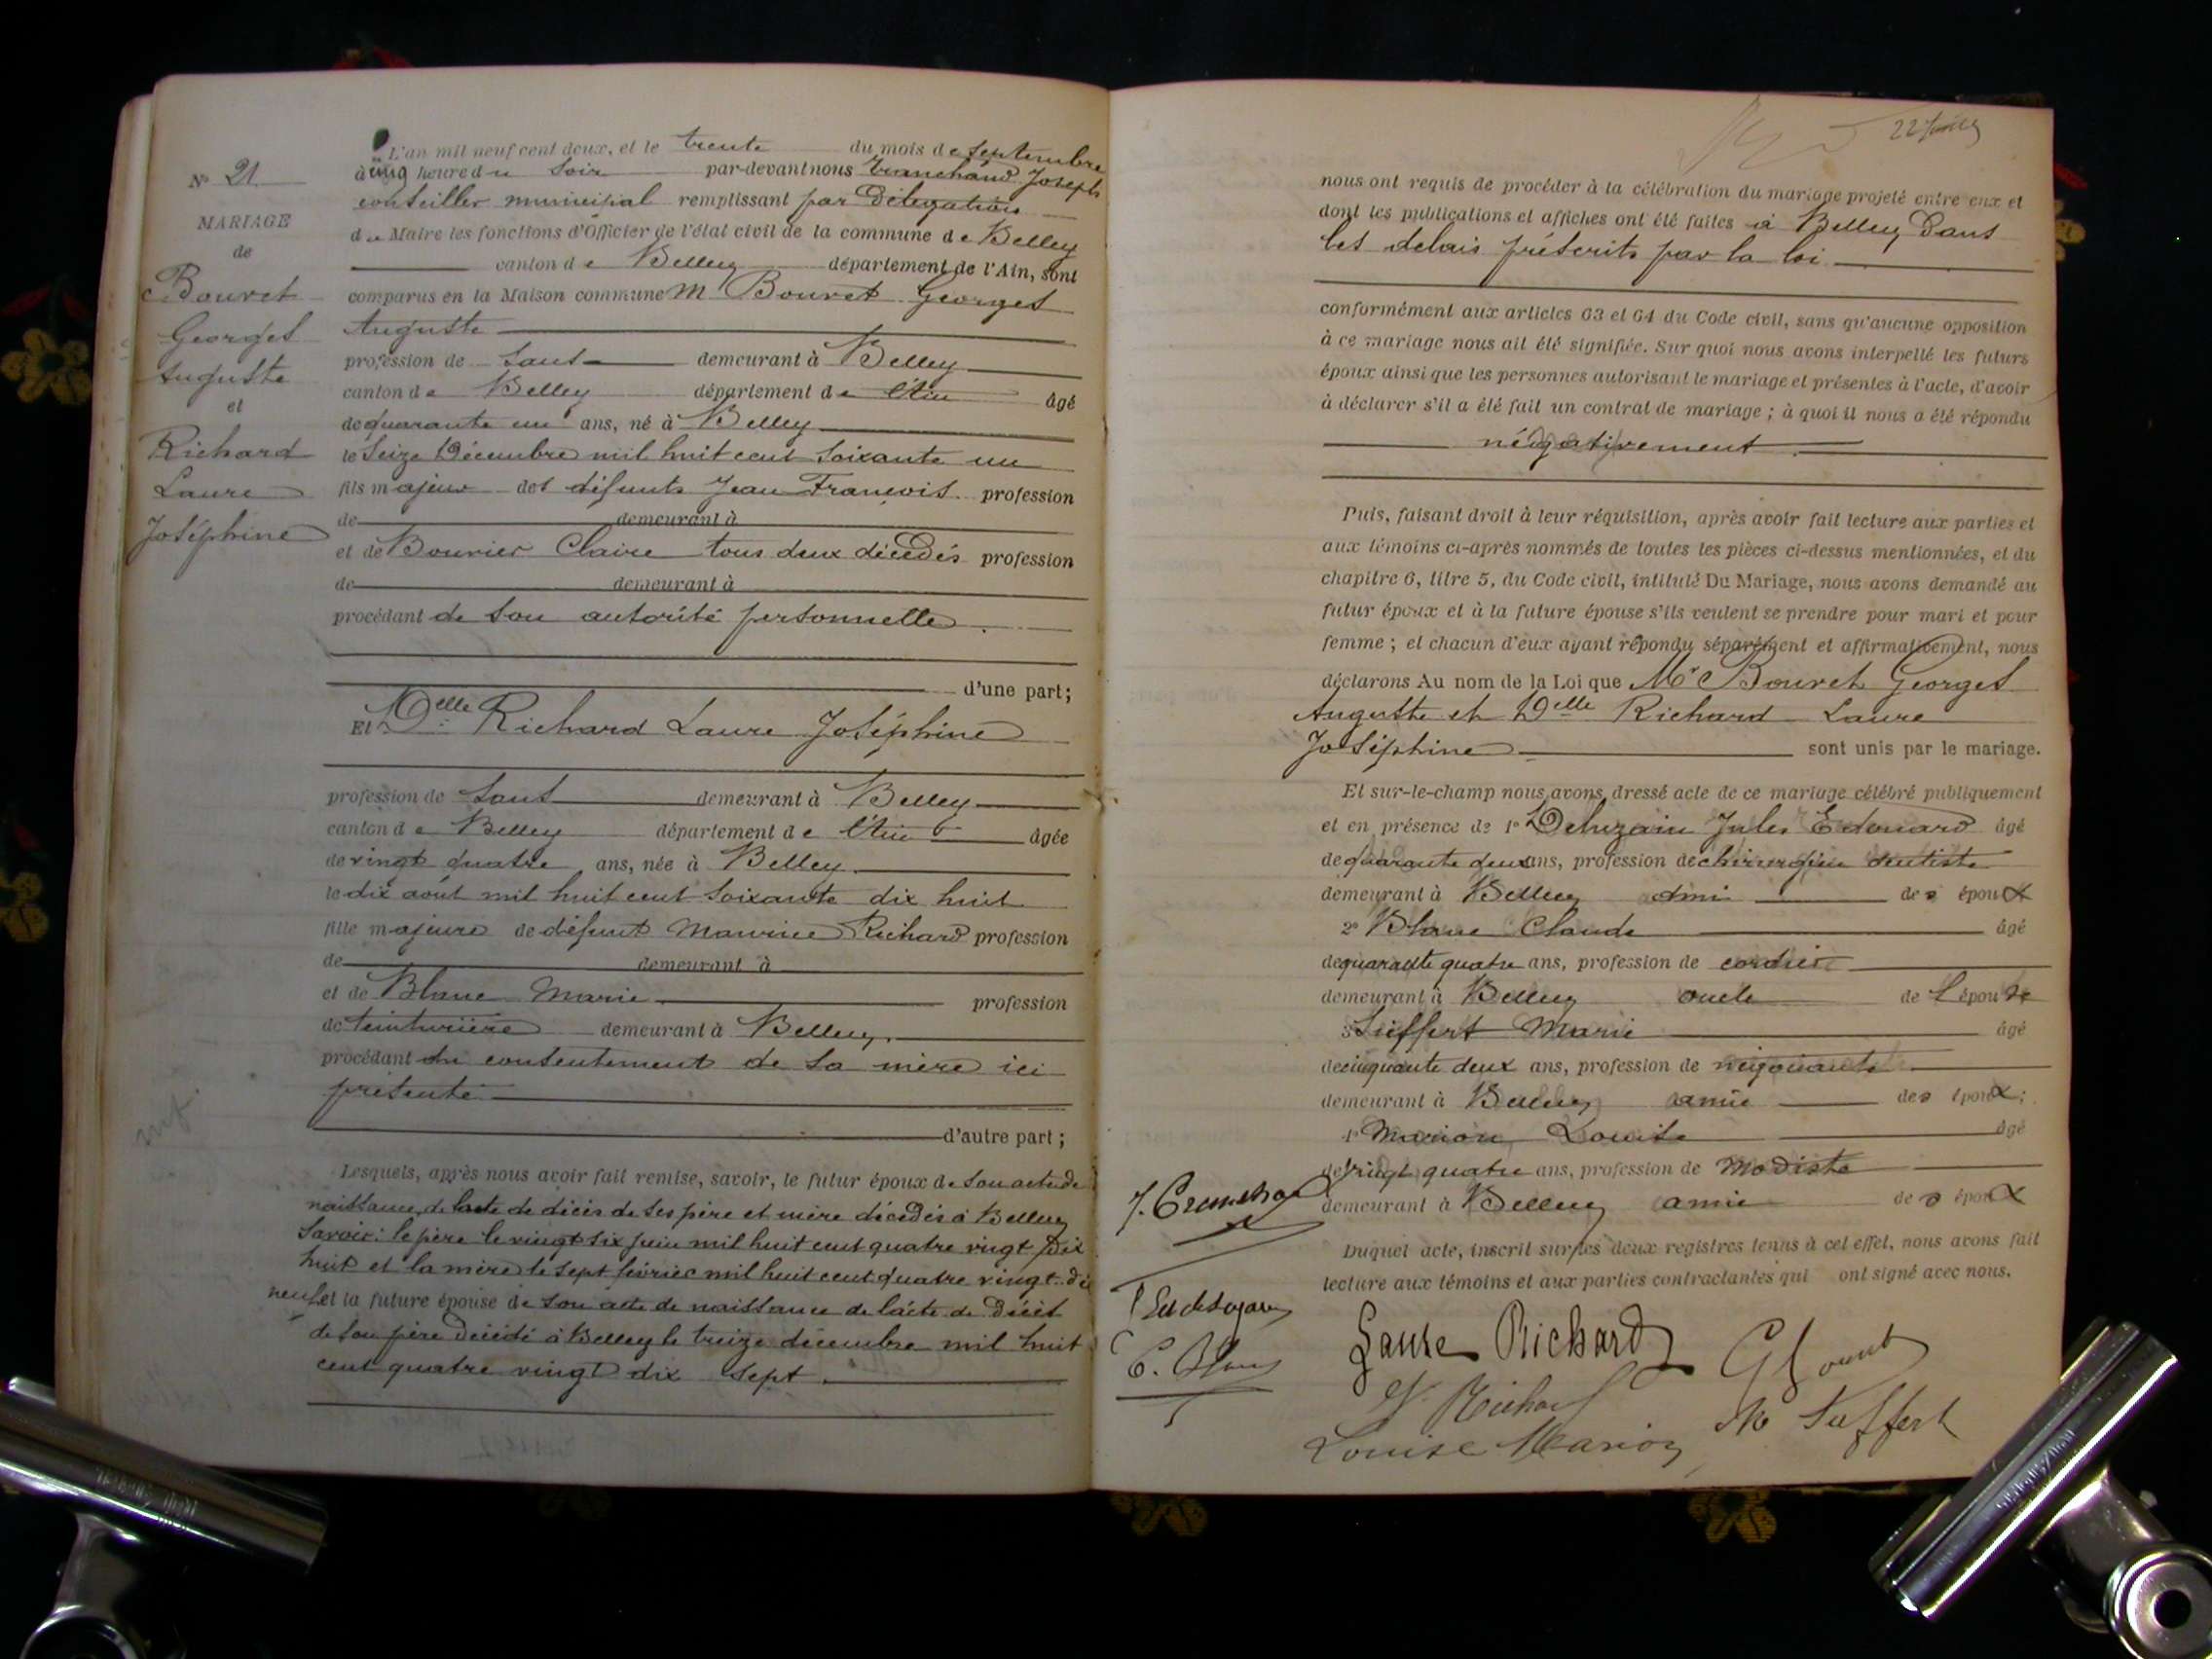 N° 21
MARIAGE
de
Bouvet
Georges
Auguste
et
Richard
Laure
Joséphine
L'an mil neuf cent deux, et le trente du mois de septembre
à cinq heure du soir par-devant nous Tranchand Joseph
conseiller municipal remplissant par Délégation
du Maire les fonctions d'Officier de l'état civil de la commune de Belley
canton de Belley département de l'Ain, sont
comparus en la Maison commune M Bouvet Georges
Auguste
profession de sans demeurant à Belley
canton de Belley département de l'Ain âgé
de quarante un ans, né à Belley
le seize Décembre mil huit cent soixante un
fils majeur des défunts Jean François profession
de demeurant à
et de Bouvier Claire tous deux décédés profession
de demeurant à
procédant de son autorité personnelle.
d'une part;
Et Delle Richard Laure Joséphine
profession de sans demeurant à Belley
canton de Belley département de l'Ain âgée
de vingt quatre ans, née à Belley
le dix août mil huit cent soixante dix huit
fille majeure de défunt Maurice Richard profession
de demeurant à
et de Blanc Marie profession
de teinturière demeurant à Belley.
procédant du consentement de sa mère ici
présente
d'autre part;
Lesquels, après nous avoir fait remise, savoir, le futur époux de son acte de
naissance, de l'acte de décès de ses père et mère décédés à Belley
savoir: le père le vingt six juin mil huit cent quatre vingt dix
huit et la mère le sept février mil huit cent quatre vingt dix
neuf et la future épouse de son acte de naissance de l'acte de décès
de son père décédé à Belley le treize décembre mil huit
cent quatre vingt dix sept.
nous ont requis de procéder à la célébration du mariage projeté entre eux et
dont les publications et affiches ont été faites à Belley dans
les délais préscrits par la loi
conformément aux articles 63 et 64 du Code civil, sans qu'aucune opposition
à ce mariage nous ait été signifiée. Sur quoi nous avons interpellé les futurs
époux ainsi que les personnes autorisant le mariage et présentes à l'acte, d'avoir
à déclarer s'il a été fait un contrat de mariage; à quoi il nous a été répondu
négativement.
Puis, faisant droit à leur réquisition, après avoir fait lecture aux parties et
aux témoins ci-après nommés de toutes les pièces ci-dessus mentionnées, et du
chapitre 6, titre 5, du Code civil, intitulé Du Mariage, nous avons demandé au
futur époux et à la future épouse s'ils veulent se prendre pour mari et pour
femme; et chacun d'eux ayant répondu séparément et affirmativement, nous
déclarons Au nom de la Loi que Mr Bouvet Georges
Auguste et Delle Richard Laure
Joséphine sont unis par le mariage.
Et sur-le-champ nous avons dressé acte de ce mariage célébré publiquement
et en présence de 1° Jules Edouard âgé
de quarante deux ans, profession de chirurgien dentiste
demeurant à Belley ami des époux
2° Blanc Claude âgé
de quarante quatre ans, profession de cordier
demeurant à Belley oncle de l'épouse
3° Sieffert Marie âgé
de cinquante deux ans, profession de négociante
demeurant à Belley amie des époux;
4° Marion Louise âgé
de vingt quatre ans, profession de Modiste
demeurant à Belley amie des époux
Duquel acte, inscrit sur les deux registres tenus à cet effet, nous avons fait
lecture aux témoins et aux parties contractantes qui ont signé avec nous.
C. Blanc
Laure Richard
G Bouvet
V. Richard
M Sieffert
Louise Marion